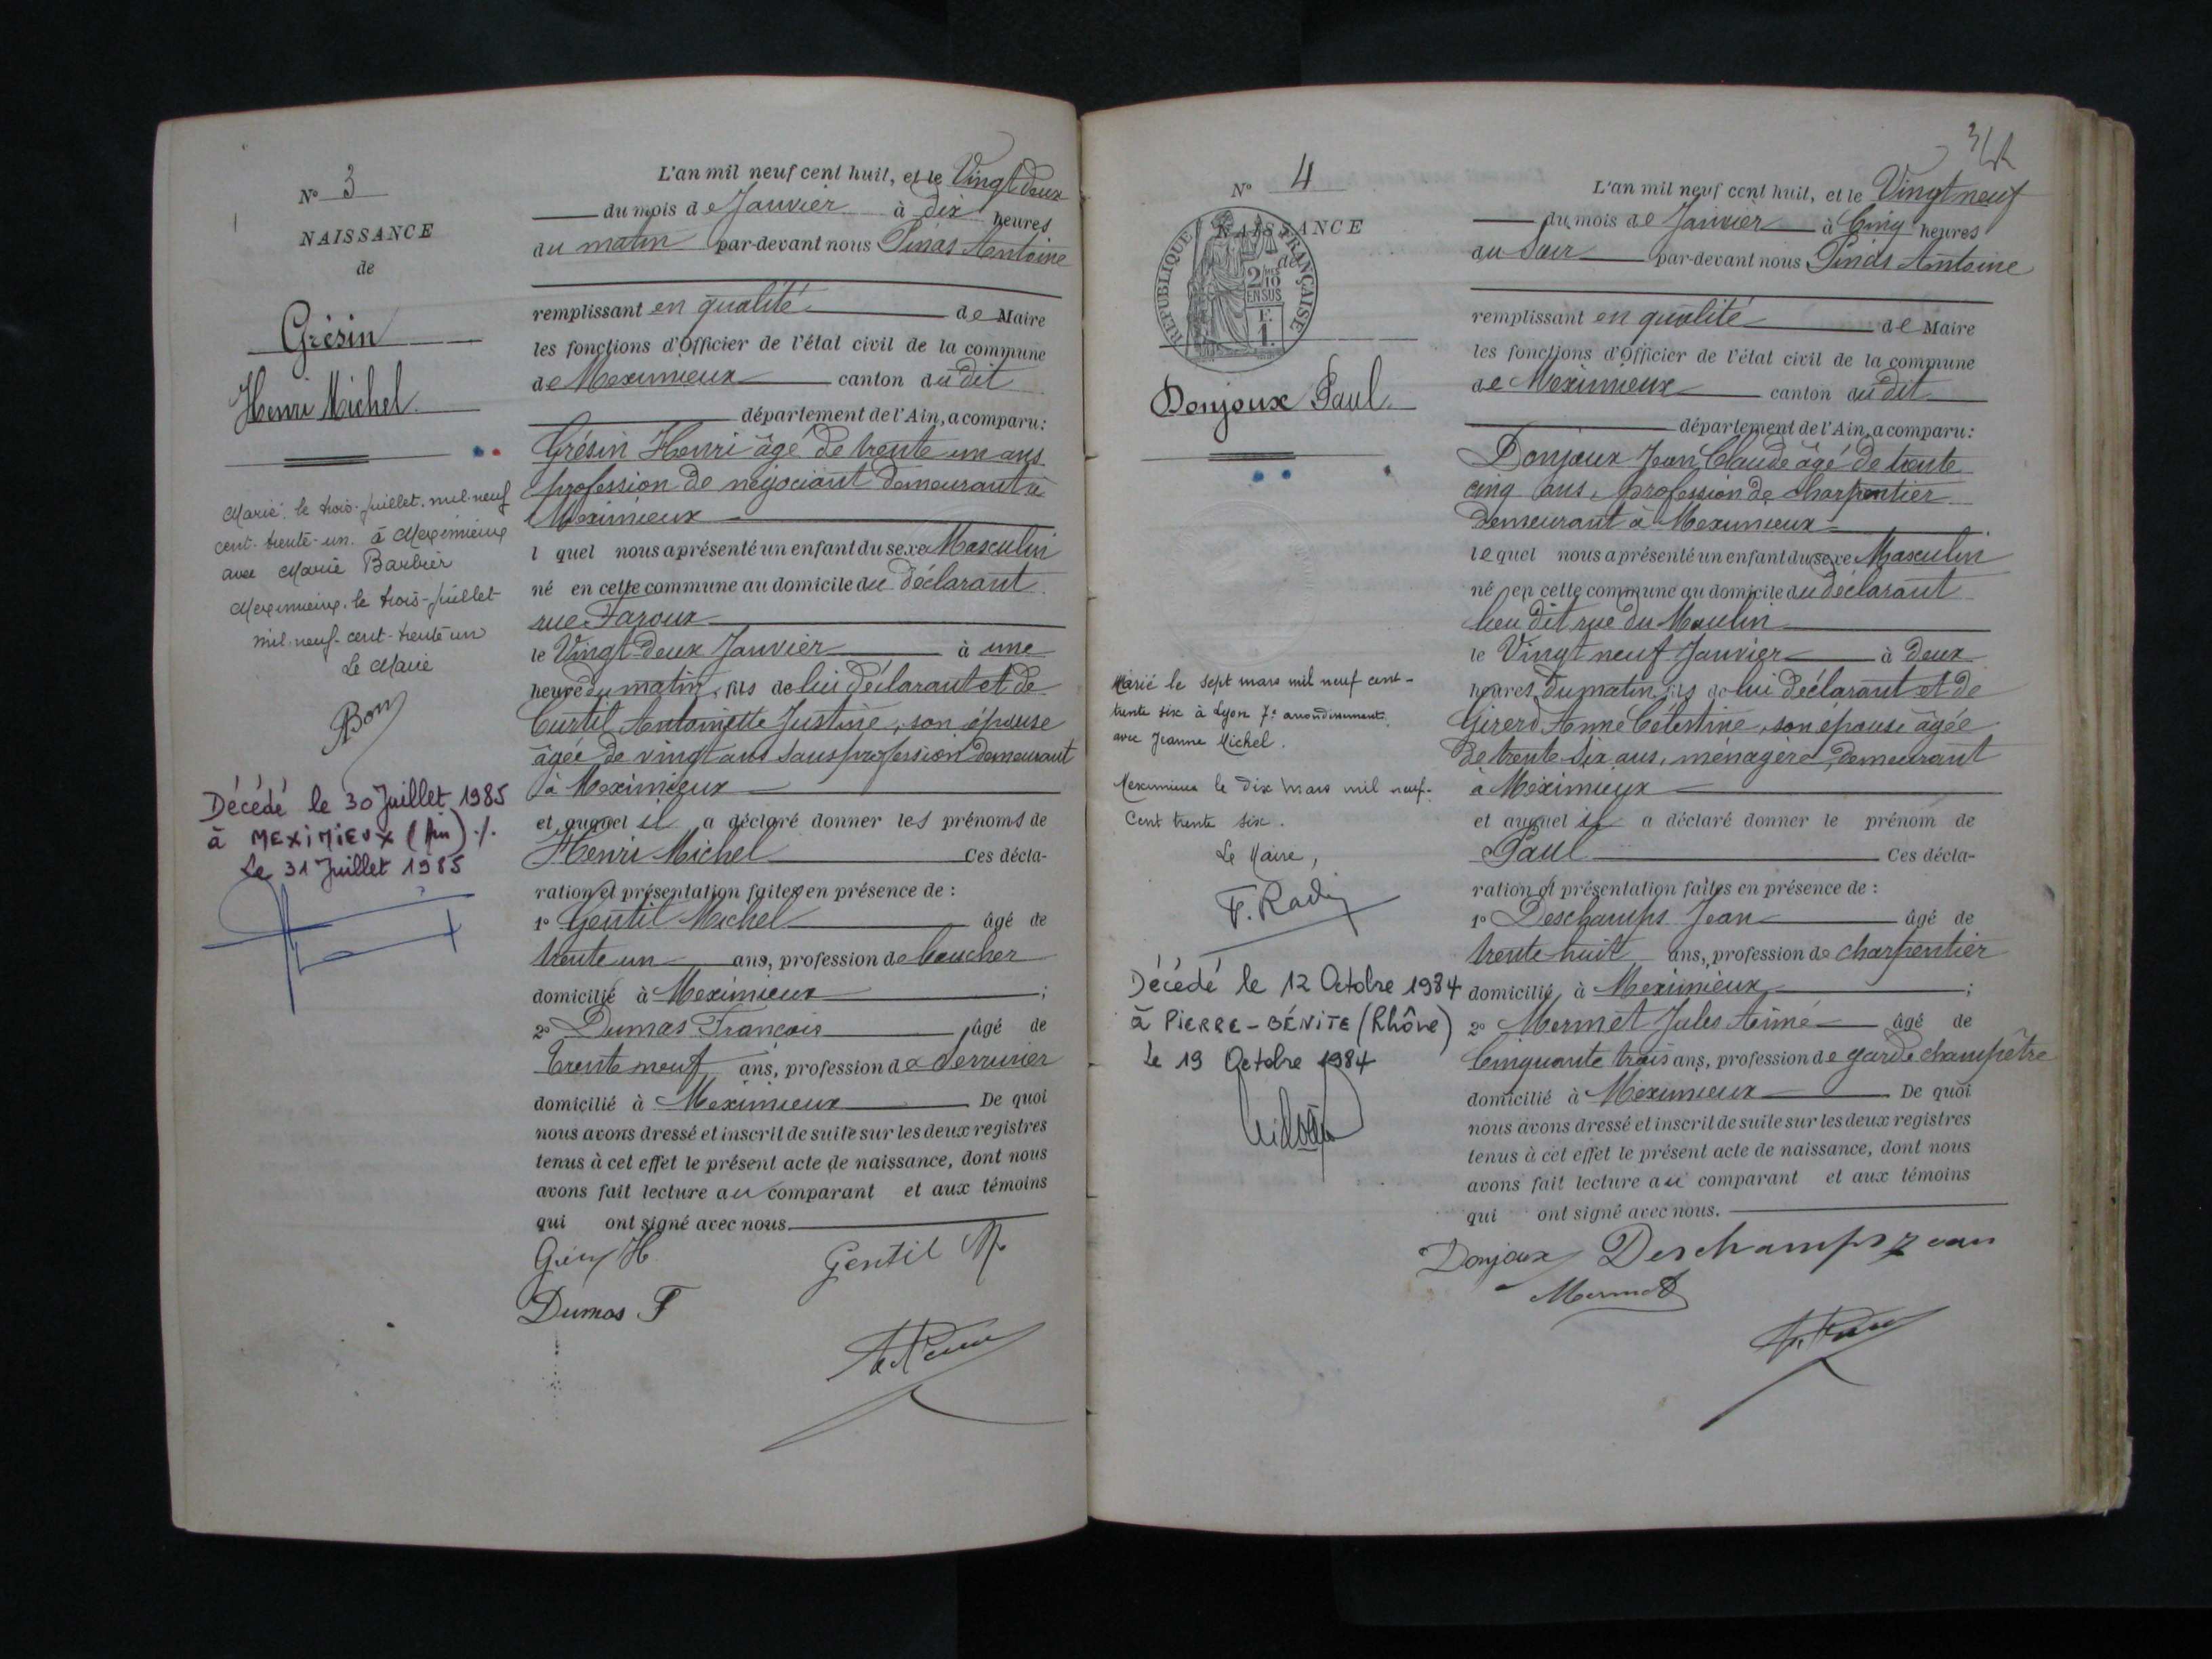 N° 3
NAISSANCE
de
Grésin
Henri Michel
Marié le trois juillet mil neuf
cent trente-un à Meximieux
avec Marie Barbier
Meximieux, le trois juillet
mil neuf cent trente un
Le Maire
Décédé le 30 Juillet 1985
à MEXIMIEUX (Ain) ./.
Le 31 Juillet 1985
L'an mil neuf cent huit, et le Vingt deux
du mois de Janvier à dix heures
du matin par-devant nous Pinas Antoine
remplissant en qualité de Maire
les fonctions d'Officier de l'état civil de la commune
de Meximieux canton du dit
département de l'Ain, a comparu:
Grésin Henri âgé de trente un ans
profession de négociant demeurant à
Meximieux
l quel nous a présenté un enfant du sexe Masculin
né en cette commune au domicile du déclarant
rue Faroux
le Vingt deux Janvier à une
heure du matin, fils de lui déclarant et de
Curtil Antoinette Justine, son épouse
âgée de vingt ans sans profession demeurant
à Meximieux
et auquel il a déclaré donner les prénoms de
Henri Michel Ces décla-
ration et présentation faites en présence de :
1° Gentil Michel âgé de
trente un ans, profession de boucher
domicilié à Meximieux ;
2° Dumas François âgé de
trente neuf ans, profession de serrurier
domicilié à Meximieux De quoi
nous avons dressé et inscrit de suite sur les deux registres
tenus à cet effet le présent acte de naissance, dont nous
avons fait lecture au comparant et aux témoins
qui ont signé avec nous.
Gentil M
Dumas F
N° 4
NAISSANCE
de
RÉPUBLIQUE FRANÇAISE
2/10
EN SUS
F.
1
Donjoux Paul
Marié le sept mars mil neuf cent-
trente six à Lyon 7e arrondissement
avec Jeanne Michel.
Meximieux le dix mars mil neuf-
Cent trente six.
Le Maire,
Décédé le 12 Octobre 1984
à PIERRE-BÉNITE (Rhône)
Le 19 Octobre 1984
L'an mil neuf cent huit, et le Vingt neuf
du mois de Janvier à Cinq heures
du Soir par-devant nous Pinas Antoine
remplissant en qualité de Maire
les fonctions d'Officier de l'état civil de la commune
de Meximieux canton du dit
département de l'Ain, a comparu:
Donjoux Jean Claude âgé de trente
cinq ans, profession de charpentier
demeurant à Meximieux
lequel nous a présenté un enfant du sexe Masculin
né en cette commune au domicile du déclarant
lieu dit rue du Moulin
le Vingt neuf Janvier à deux
heures du matin, fils de lui déclarant et de
Girerd Anne Célestine, son épouse âgée
de trente six ans, ménagère, demeurant
à Meximieux
et auquel il a déclaré donner le prénom de
Paul Ces décla-
ration et présentation faites en présence de :
1° Deschamps Jean âgé de
trente huit ans, profession de charpentier
domicilié à Meximieux ;
2° Mermet Jules Aimé âgé de
Cinquante trois ans, profession de garde champêtre
domicilié à Meximieux De quoi
nous avons dressé et inscrit de suite sur les deux registres
tenus à cet effet le présent acte de naissance, dont nous
avons fait lecture au comparant et aux témoins
qui ont signé avec nous.
Donjoux Deschamps Jean
Mermet